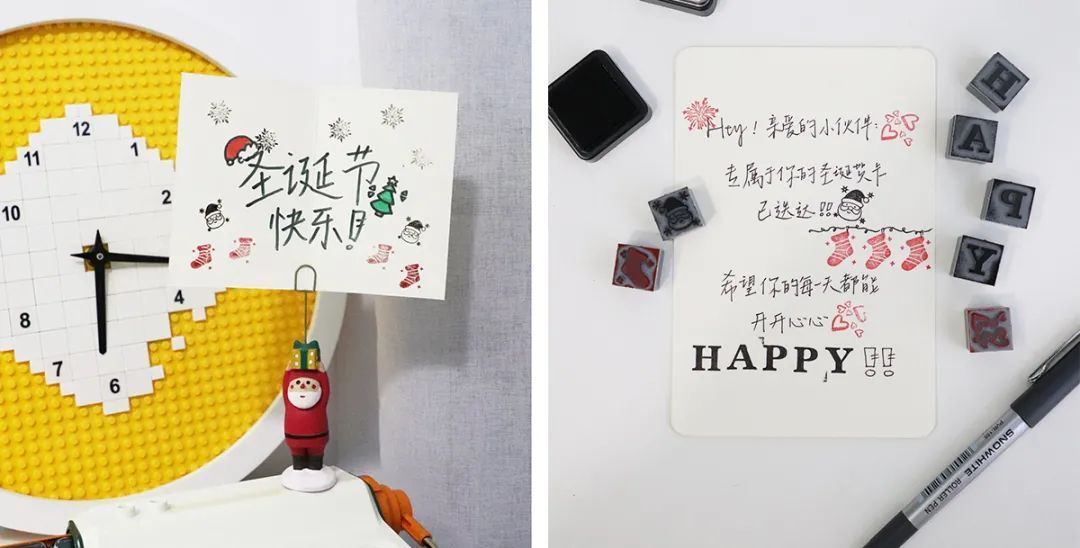 12
11
1
10
2
圣诞节
快乐!!
4
8
7
5
6
Hey! 亲爱的小伙伴:
专属于你的圣诞贺卡
已送达!!
希望你的每一天都能
开开心心
HAPPY!!
H
A
P
Y
SNOWHITE
ROLLER PEN